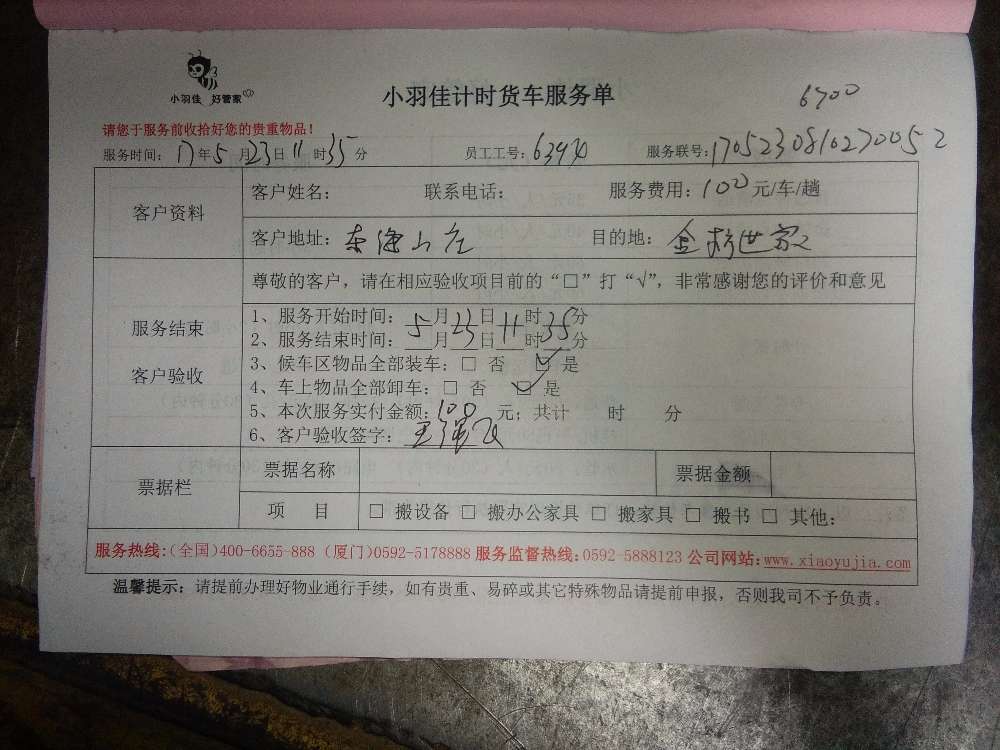 小羽佳 好管家
小羽佳计时货车服务单
6700
请您于服务前收拾好您的贵重物品！
服务时间：17年5月23日11时35分 员工工号： 服务联号：1705230810270052
客户资料
客户姓名： 联系电话： 服务费用：100元/车/趟
客户地址：东海山庄 目的地：金杉世家
尊敬的客户，请在相应验收项目前的“□”打“√”，非常感谢您的评价和意见
服务结束
客户验收
1、服务开始时间：5月23日11时35分
2、服务结束时间：月 日 时 分
3、候车区物品全部装车：□ 否 ☑ 是
4、车上物品全部卸车：□ 否 ☑ 是
5、本次服务实付金额：100元；共计 时 分
6、客户验收签字：王强飞
票据栏
票据名称 票据金额
项 目 □ 搬设备 □ 搬办公家具 □ 搬家具 □ 搬书 □ 其他：
服务热线：(全国)400-6655-888 (厦门)0592-5178888 服务监督热线：0592-5888123 公司网站：www.xiaoyujia.com
温馨提示：请提前办理好物业通行手续，如有贵重、易碎或其它特殊物品请提前申报，否则我司不予负责。